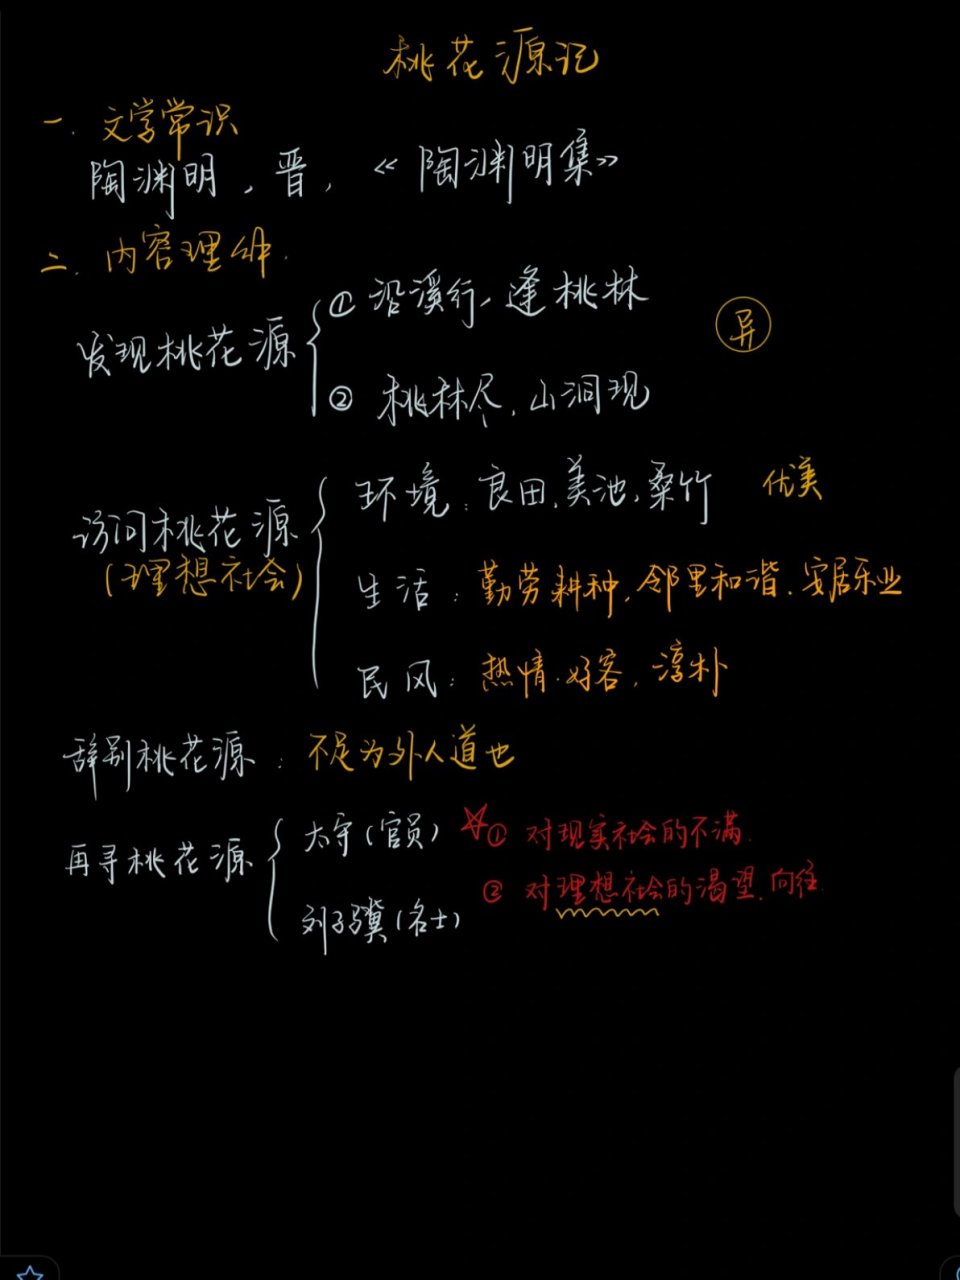 桃花源记
一. 文学常识
陶渊明, 晋, 《陶渊明集》
二. 内容理解.
发现桃花源
① 沿溪行, 逢桃林
异
② 桃林尽, 山洞现
访问桃花源
(理想社会)
环境: 良田, 美池, 桑竹 优美
生活: 勤劳耕种, 邻里和谐, 安居乐业
民风: 热情好客, 淳朴
辞别桃花源: 不足为外人道也
再寻桃花源
太守(官员)
刘子骥(名士)
☆① 对现实社会的不满.
② 对理想社会的渴望, 向往.